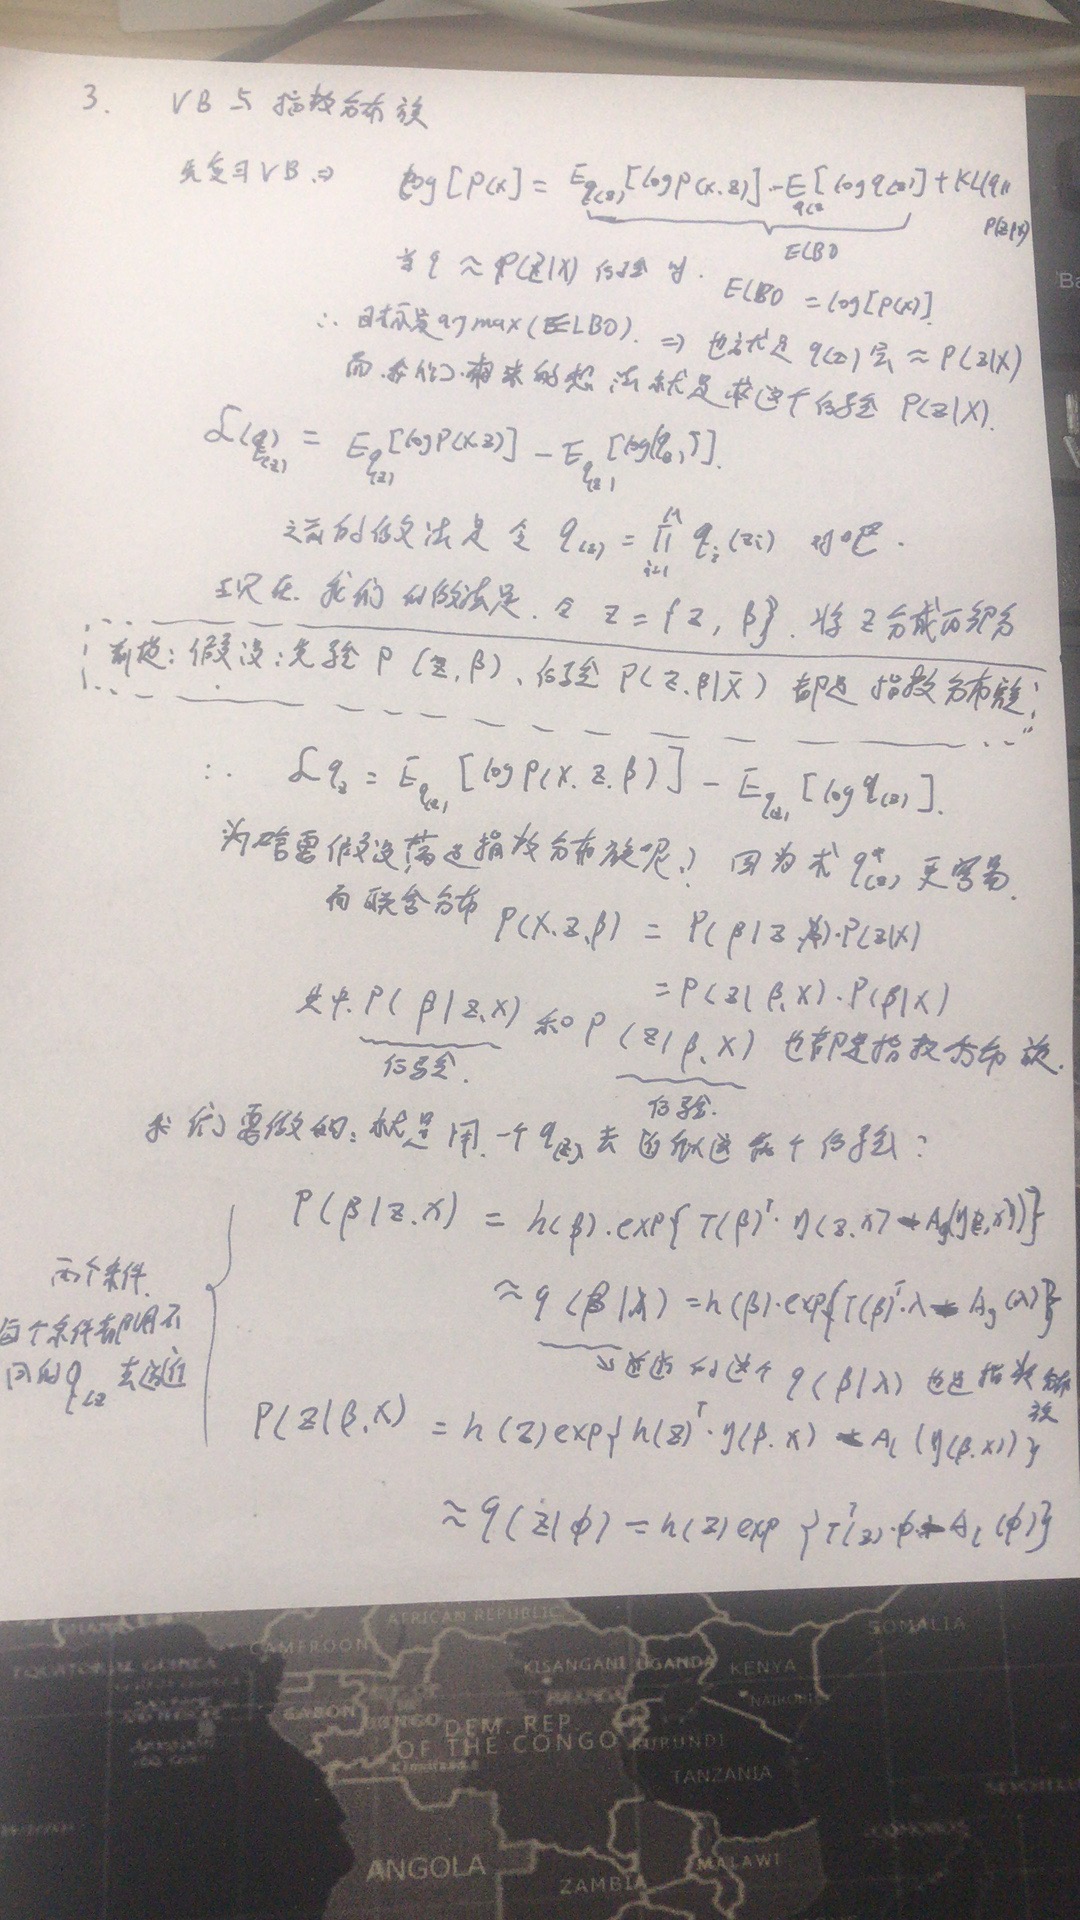 3. VB与指数分布族
先复习VB ⇒ log[P(X)] = E_{q(z)}[log P(X,Z)] - E_{q(z)}[log q(z)] + KL(q||P(Z|X))
ELBO
当 q ≈ P(Z|X) 后验时. ELBO = log[P(X)].
∴ 目标是 argmax(ELBO). ⇒ 也就是 q(z) 去 ≈ P(Z|X)
而我们本来的想法就是求这个后验 P(Z|X).
L(q(z)) = E_{q(z)}[log P(X,Z)] - E_{q(z)}[log q(z)].
之前的做法是令 q(z) = ∏_{i=1}^{M} q_i(z_i) 对吧.
现在我们的做法是.令 Z = {Z, β}. 将Z分成两部分
前提: 假设: 先验 P(Z,β)、后验 P(Z,β|X) 都是指数分布族
∴ L q_z = E_{q(z)}[log P(X,Z,β)] - E_{q(z)}[log q(z)].
为啥要假设是指数分布族呢? 因为求 q*(z) 更容易.
而联合分布 P(X,Z,β) = P(β|Z,X)·P(Z|X)
= P(Z|β,X)·P(β|X)
其中 P(β|Z,X) 和 P(Z|β,X) 也都是指数分布族.
后验. 后验.
我们要做的: 就是用一个 q(z) 去近似这两个后验:
P(β|Z,X) = h(β)·exp{T(β)^T·η(Z,X) - A_g(η(Z,X))}
两个条件.
每个条件都用不同的 q(z) 去逼近
≈ q(β|λ) = h(β)·exp{T(β)^T·λ - A_g(λ)}
↘ 逼近的这个 q(β|λ) 也是指数分布族
P(Z|β,X) = h(Z) exp{h(Z)^T·η(β,X) - A_l(η(β,X))}
≈ q(Z|ϕ) = h(Z) exp{T^T(Z)·ϕ - A_l(ϕ)}
AFRICAN REPUBLIC
SOMALIA
CAMEROON
EQUATORIAL GUINEA
KISANGANI
UGANDA
KENYA
NAIROBI
GABON
CONGO
DEM. REP.
OF THE CONGO
BURUNDI
TANZANIA
ANGOLA
MALAWI
ZAMBIA